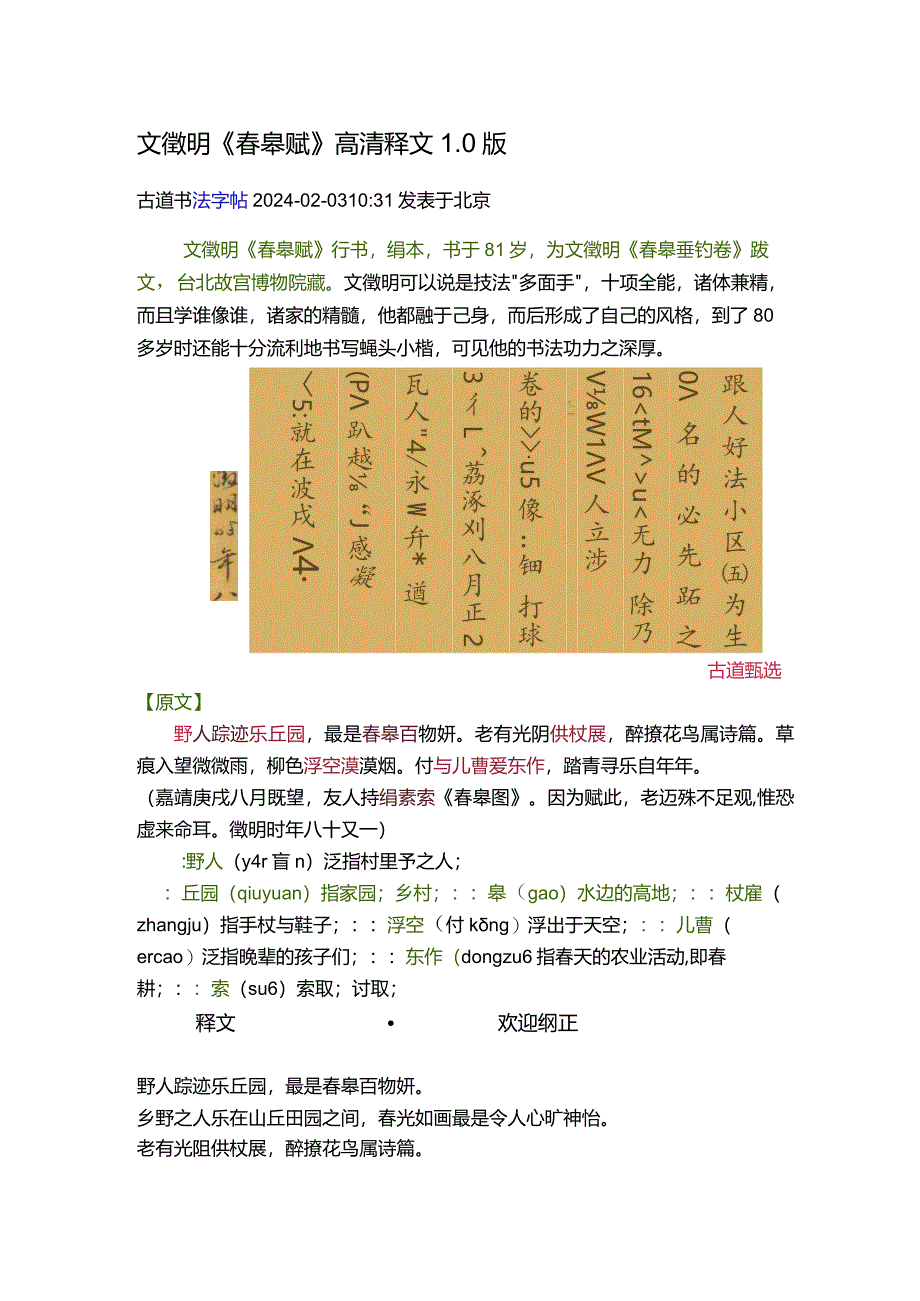 文徵明《春皋赋》高清释文 1.0 版
古道书法字帖 2024-02-0310:31 发表于北京
文徵明《春皋赋》行书，绢本，书于 81 岁，为文徵明《春皋垂钓卷》跋
文，台北故宫博物院藏。文徵明可以说是技法"多面手"，十项全能，诸体兼精，
而且学谁像谁，诸家的精髓，他都融于己身，而后形成了自己的风格，到了 80
多岁时还能十分流利地书写蝇头小楷，可见他的书法功力之深厚。
跟人好法小区㈤为生
0Λ 名的必先跖之
16<tM^>u<无力 除乃
V⅛W1ΛV 人立涉
卷的>>·u5 像‥钿 打球
3彳L^荔涿刈八月正2
瓦人"4/永W弁*遒
(PΛ 趴越⅛“J感凝
〈5:就在波戌Λ4·
明
年八
古道甄选
【原文】
野人踪迹乐丘园，最是春皋百物妍。老有光阴供杖展，醉撩花鸟属诗篇。草
痕入望微微雨，柳色浮空漠漠烟。付与儿曹爱东作，踏青寻乐自年年。
（嘉靖庚戌八月既望，友人持绢素索《春皋图》。因为赋此，老迈殊不足观,惟恐
虚来命耳。徵明时年八十又一）
:野人（y4r 盲 n）泛指村里予之人；
：丘园（qiuyuan）指家园；乡村；：：皋（gao）水边的高地；：：杖雇（
zhangju）指手杖与鞋子；：：浮空（付 kδng）浮出于天空；：：儿曹（
ercao）泛指晚辈的孩子们；：：东作（dongzu6 指春天的农业活动,即春
耕；：：索（su6）索取；讨取；
释文 • 欢迎纲正
野人踪迹乐丘园，最是春皋百物妍。
乡野之人乐在山丘田园之间，春光如画最是令人心旷神怡。
老有光阻供杖展，醉撩花鸟属诗篇。